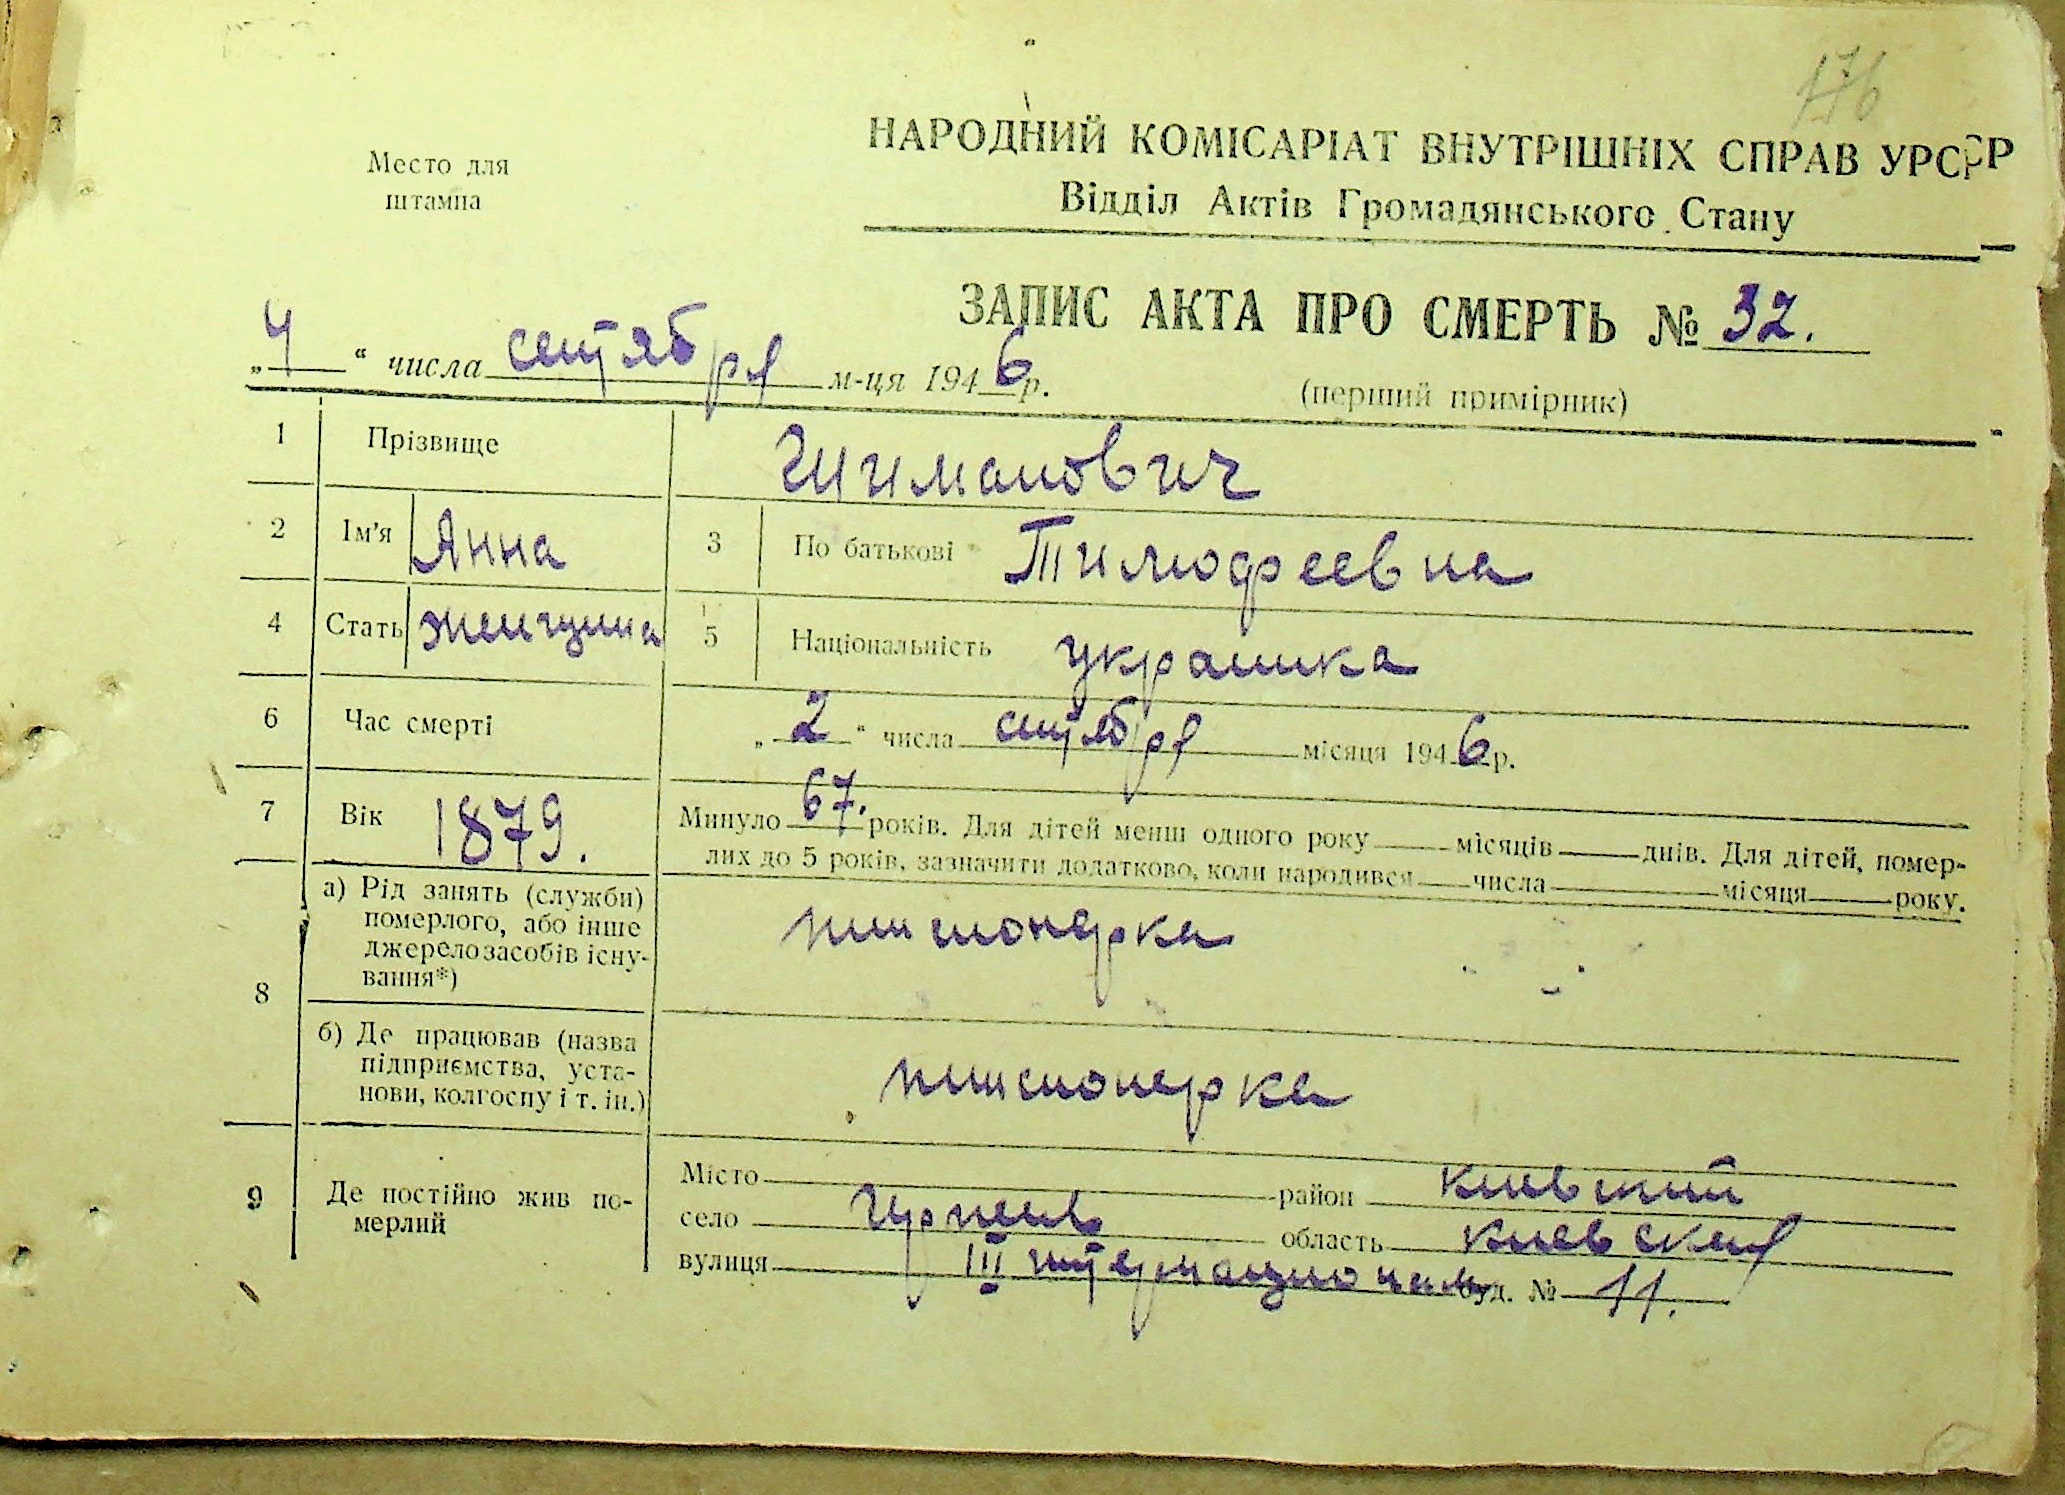 176
Место для
штампа
НАРОДНИЙ КОМІСАРІАТ ВНУТРІШНІХ СПРАВ УРСР
Відділ Актів Громадянського Стану
ЗАПИС АКТА ПРО СМЕРТЬ № 32.
„4“ числа сентября м-ця 1946 р.
(перший примірник)
1 Прізвище Шиманович
2 Ім'я Анна 3 По батькові Тимофеевна
4 Стать женщина 5 Національність украинка
6 Час смерті „2“ числа сентября місяця 1946 р.
7 Вік 1879. Минуло 67. років. Для дітей менш одного року місяців днів. Для дітей, помер-
лих до 5 років, зазначити додатково, коли народився числа місяця року.
8 а) Рід занять (служби)
померлого, або інше
джерело засобів існу-
вання*)
пенсионерка
б) Де працював (назва
підприємства, уста-
нови, колгоспу і т. ін.)
пенсионерка
9 Де постійно жив по-
мерлий
Місто район Киевский
село Ирпень область Киевская
вулиця III интернационала буд. № 11.